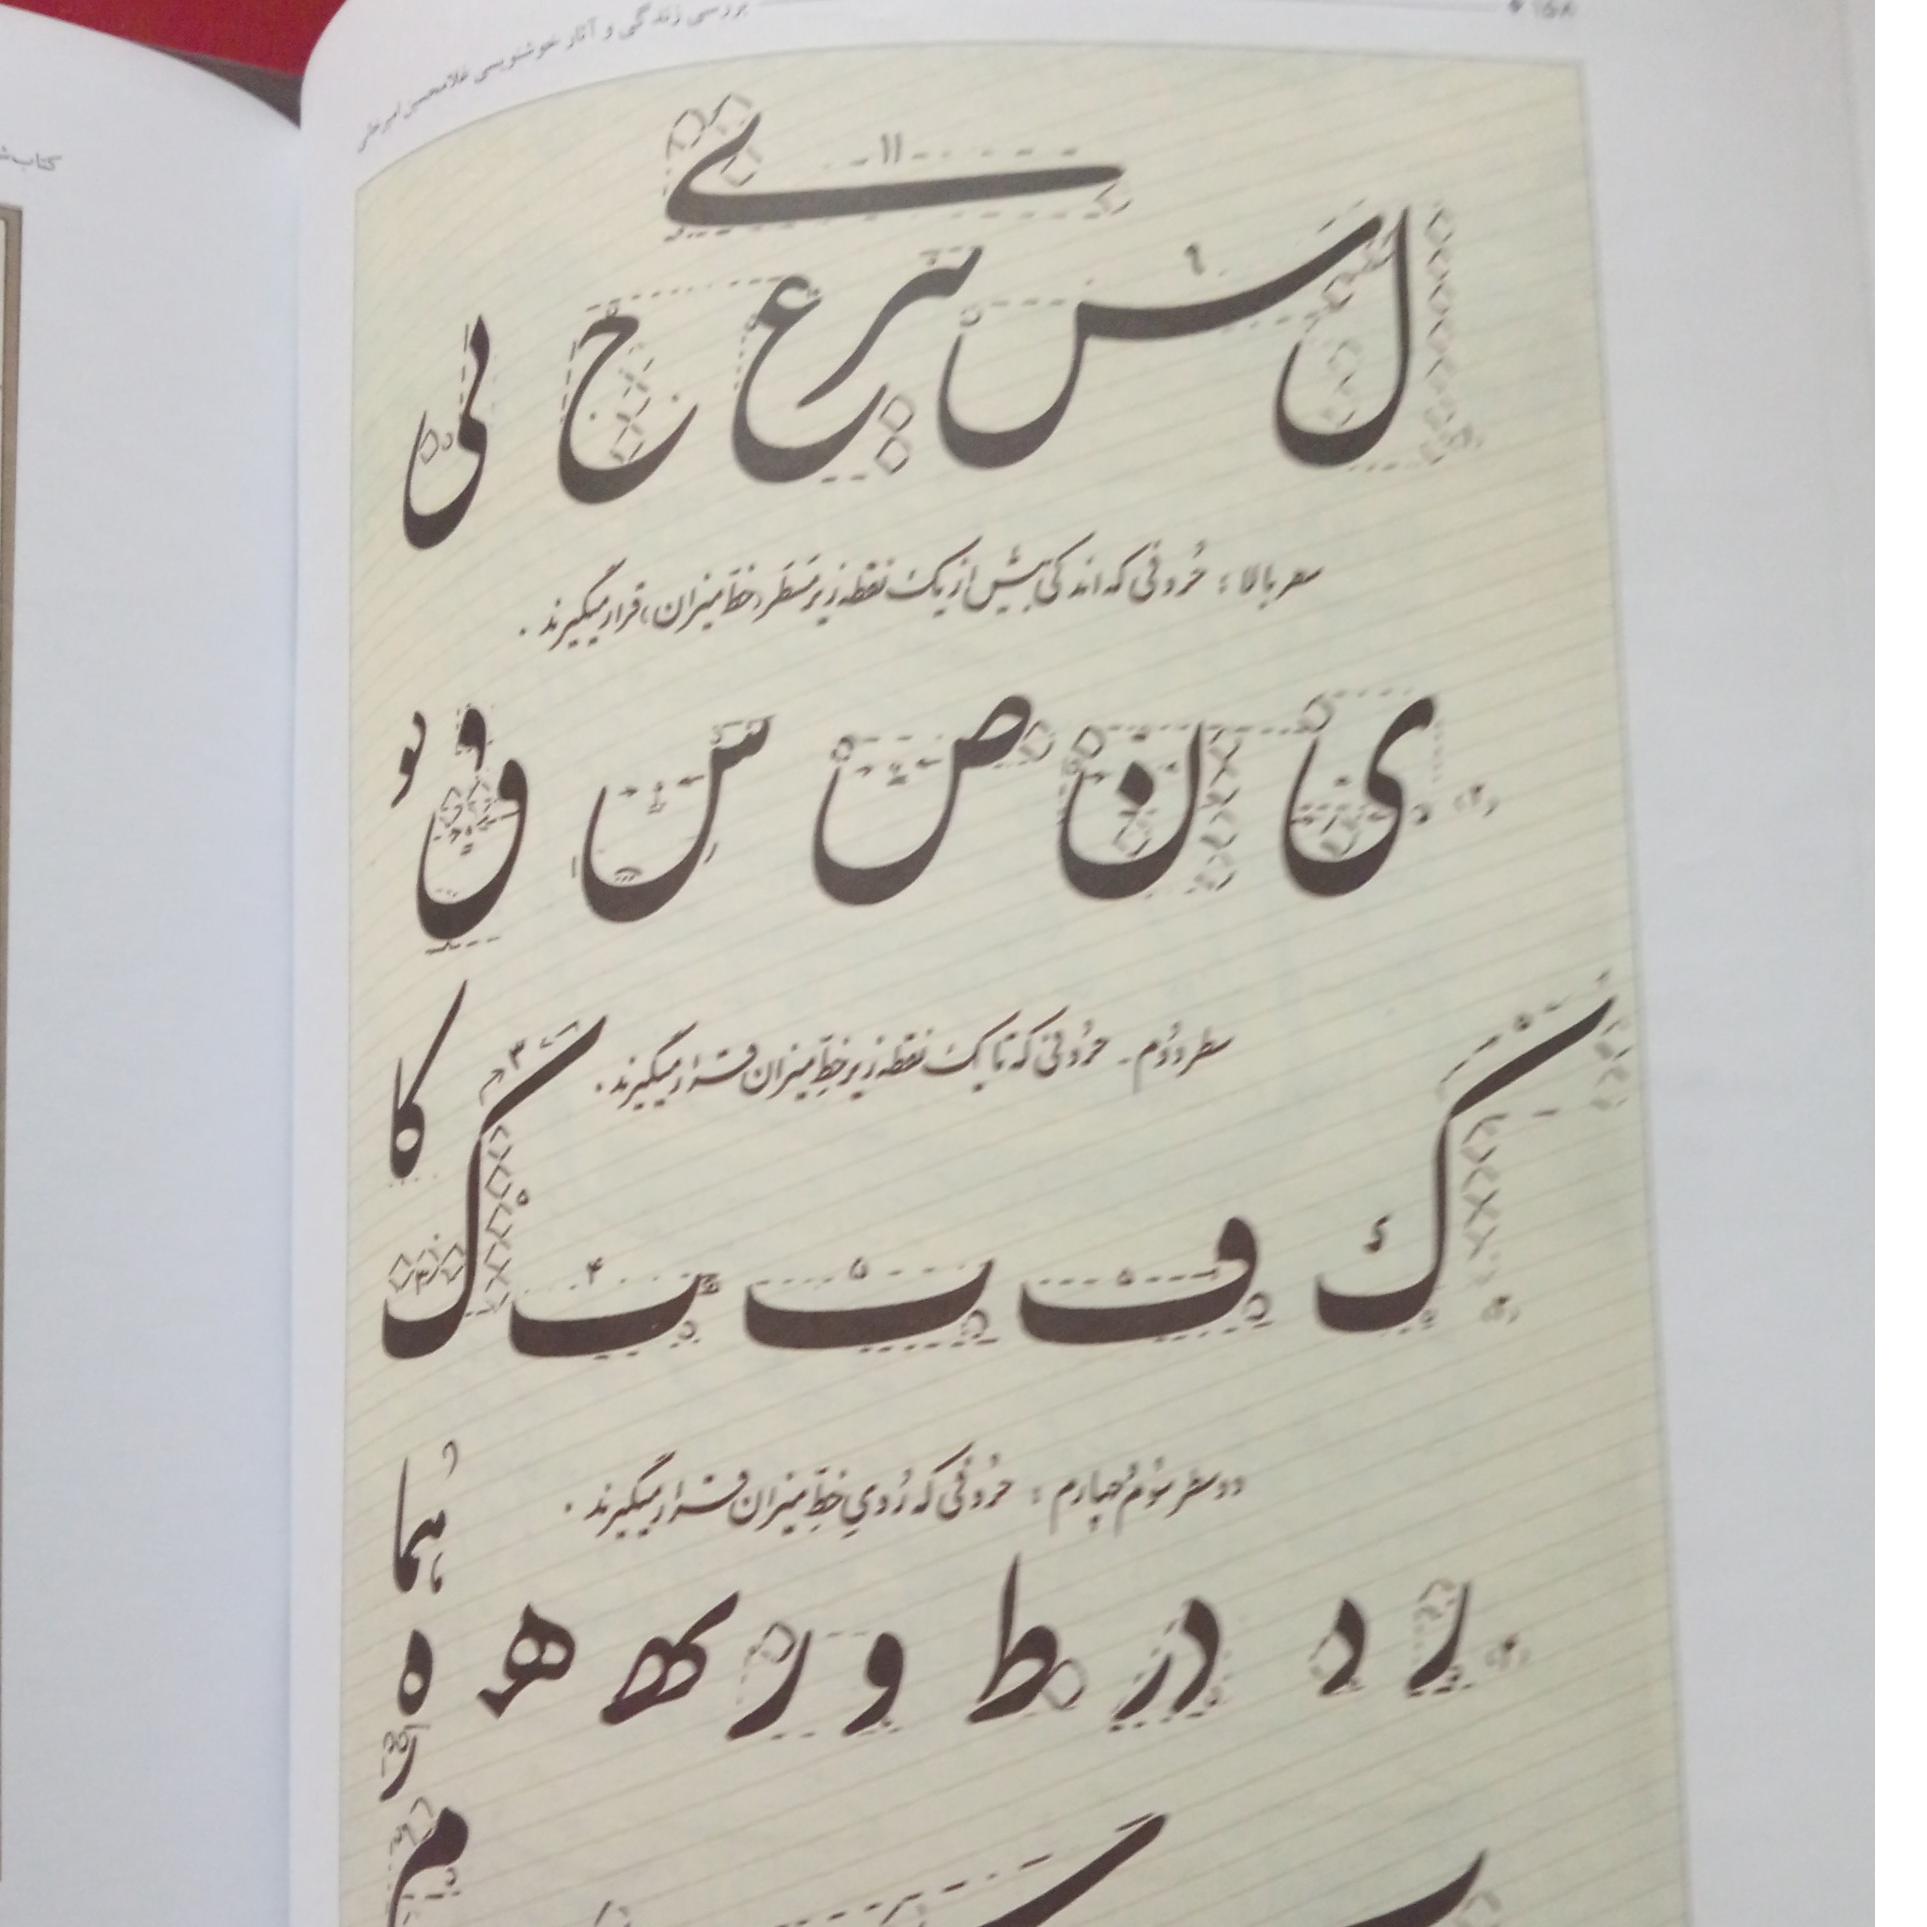 ۱۵۸ بررسی زندگی و آثار خوشنویسی غلامحسین امیرخانی
ے ۱۱
ل س س ع ح لی
سطر بالا : حروفی که اندکی بیش از یک نقطه زیر مسطر (خط میزان) قرار میگیرند .
(۲) ی ن ص س ق
سطر دوم - حروفی که تا یک نقطه زیر خط میزان قرار میگیرند .
کا
(۳) ک ف ب ب ک
۵ ۵ ۵ ۴ ۳
دو سطر سوم و چهارم : حروفی که روی خط میزان قرار میگیرند .
هما
(۴) ر د در ط و ر که هه ه
م